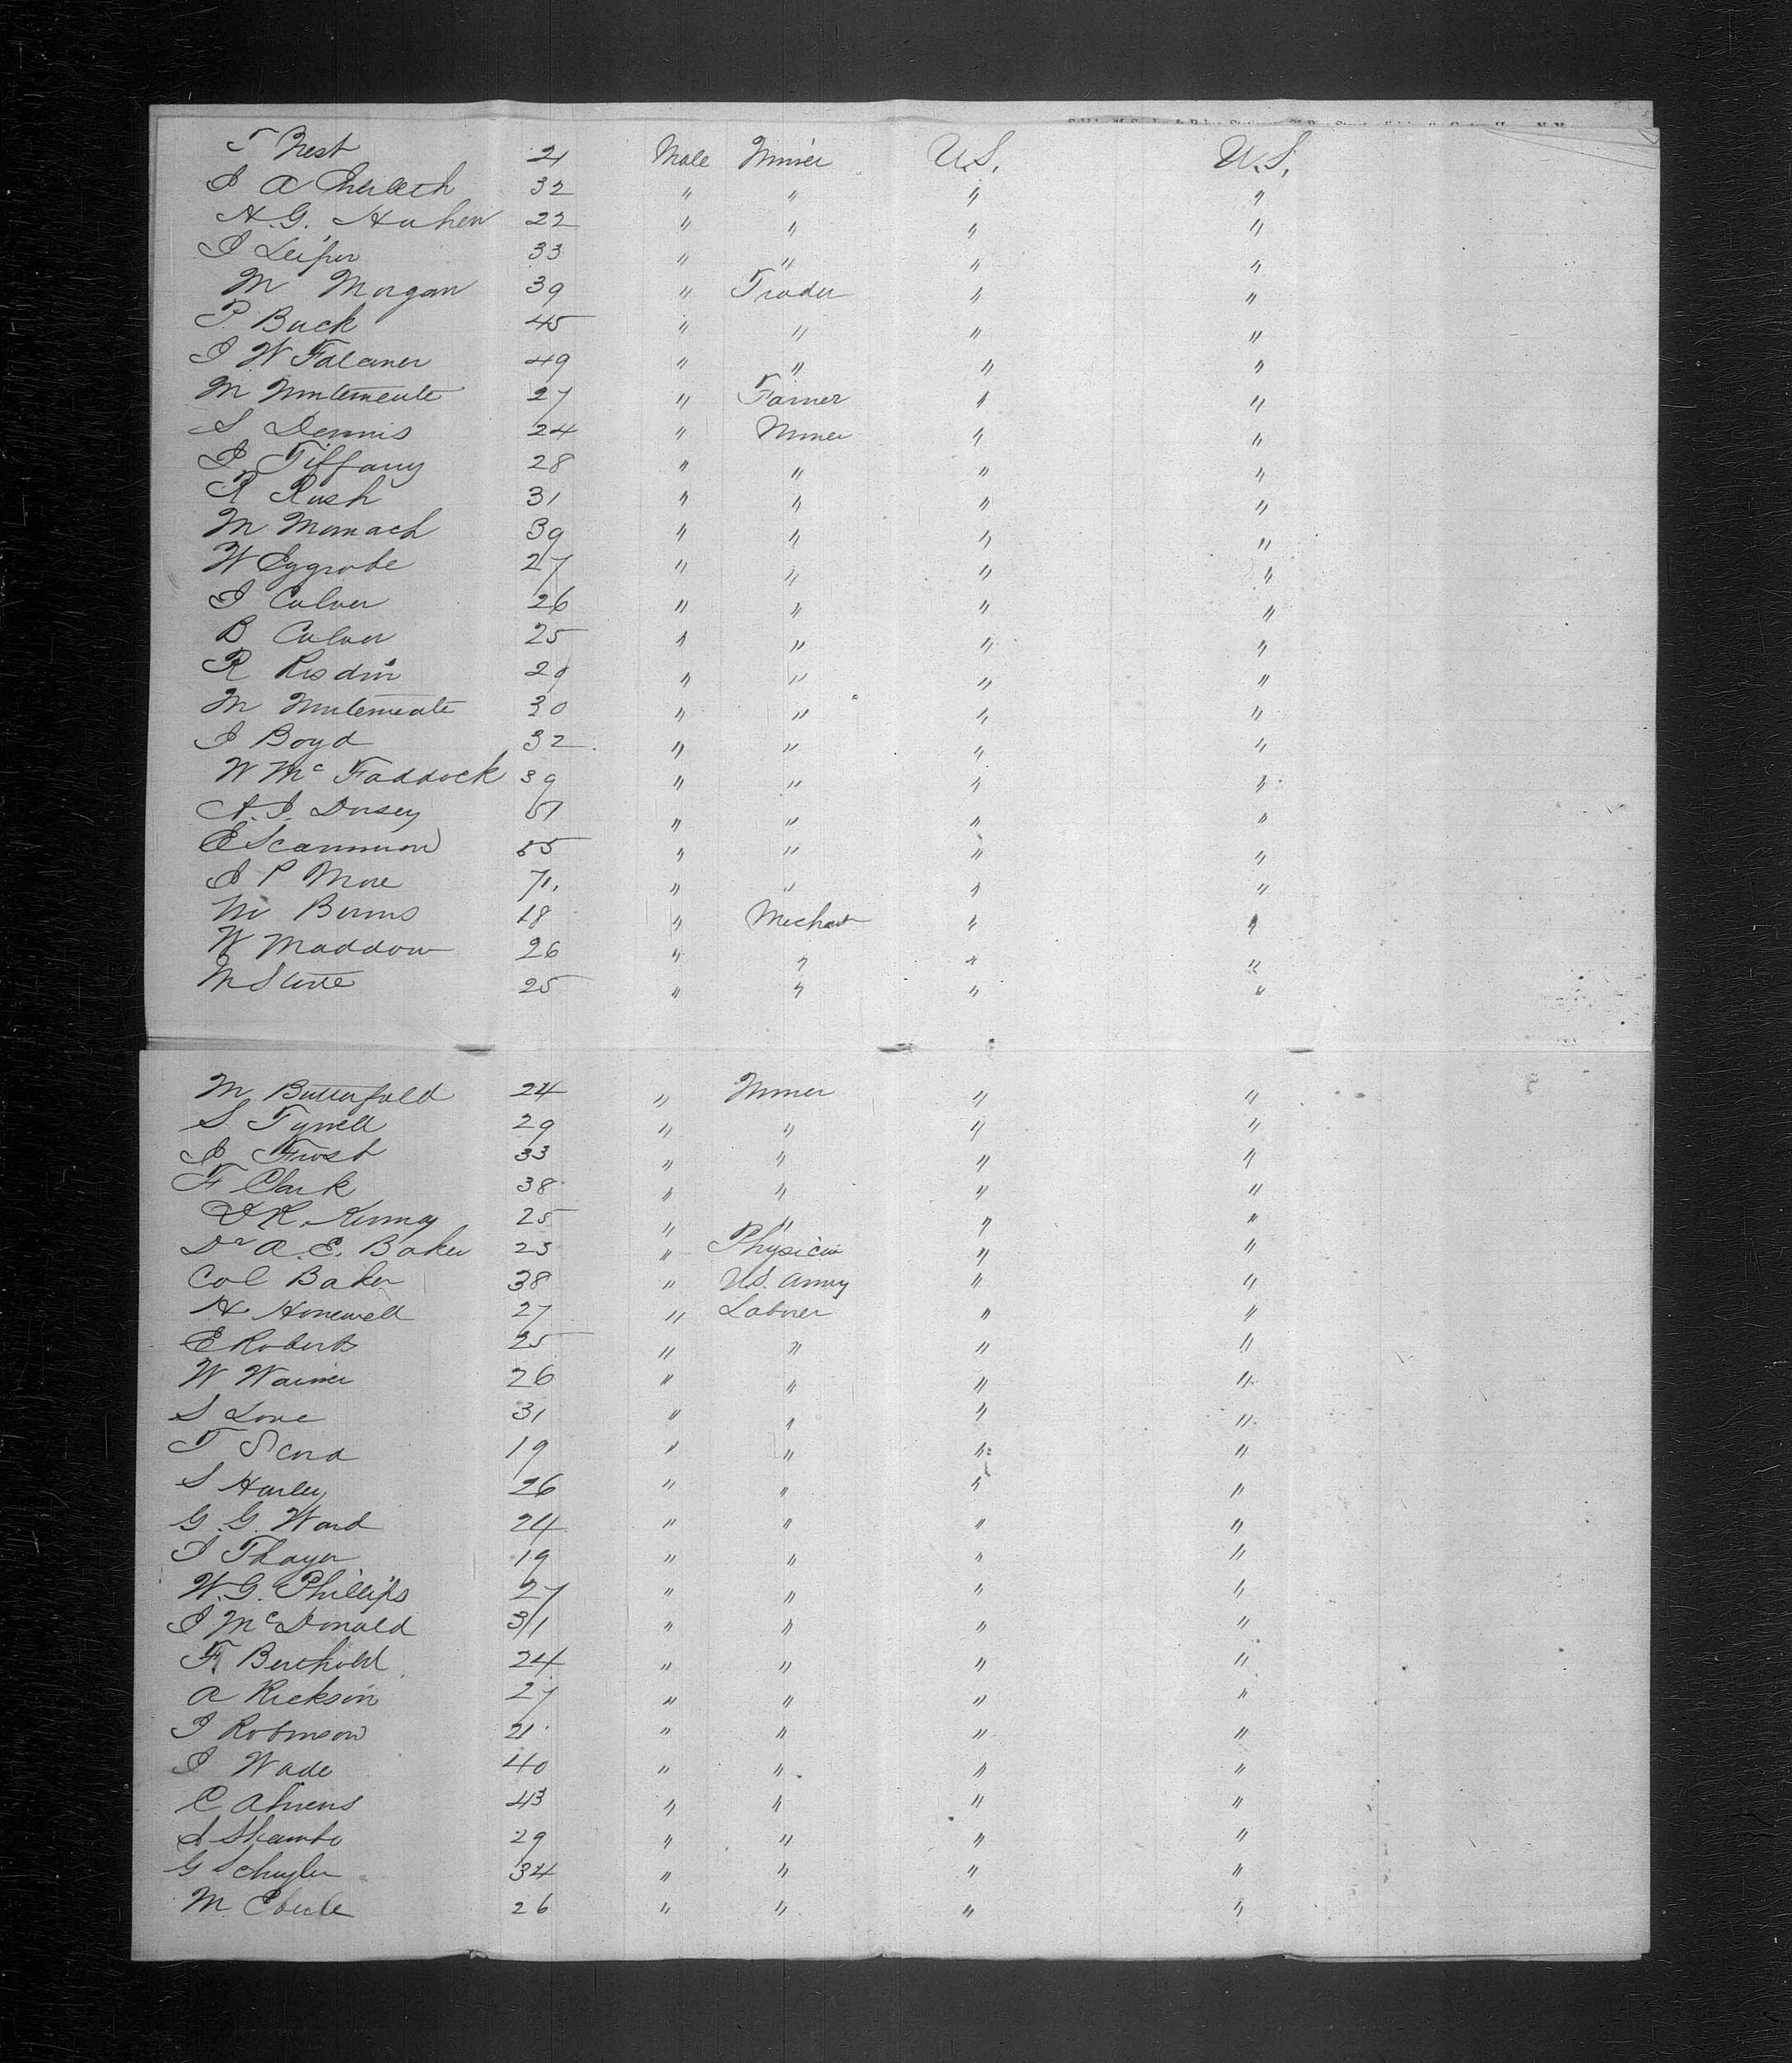 T West 21 Male Miner U.S. U.S.
J A 32 " " " "
H. G. 22 " " " "
J Leifer 33 " " " "
M Morgan 39 " Trader " "
P. Buck 45 " " " "
J W Falconer 49 " " " "
M 27 " Farmer " "
S Dennis 24 " Miner " "
J Tiffany 28 " " " "
R Rush 31 " " " "
M 39 " " " "
W 27 " " " "
J Culver 26 " " " "
B Culver 25 " " " "
R Risdin 29 " " " "
M 30 " " " "
J Boyd 32 " " " "
W Mc Faddock 39 " " " "
A. J. Dorsey 51 " " " "
E Scammon 55 " " " "
J P More 71 " " " "
M Burns 18 " Mechant " "
W Maddow 26 " " " "
M 25 " " " "
M Butterfield 24 " Miner " "
S. Tyrrell 29 " " " "
J Frost 33 " " " "
F Clark 38 " " " "
D R. Kinney 25 " " " "
Dr A. E. Baker 25 " Physician " "
Col Baker 38 " U.S. Army " "
H. Honewell 27 " Laborer " "
E Roberts 25 " " " "
W Warner 26 " " " "
S Love 31 " " " "
T 19 " " " "
S Harley 26 " " " "
G. G. Ward 24 " " " "
J Thayer 19 " " " "
W. G. Phillips 27 " " " "
J McDonald 31 " " " "
F. Berthold 24 " " " "
A Rickson 27 " " " "
J Robinson 21 " " " "
J Wade 40 " " " "
C Ahrens 43 " " " "
J Shambo 29 " " " "
G Schuyler 34 " " " "
M Eberle 26 " " " "